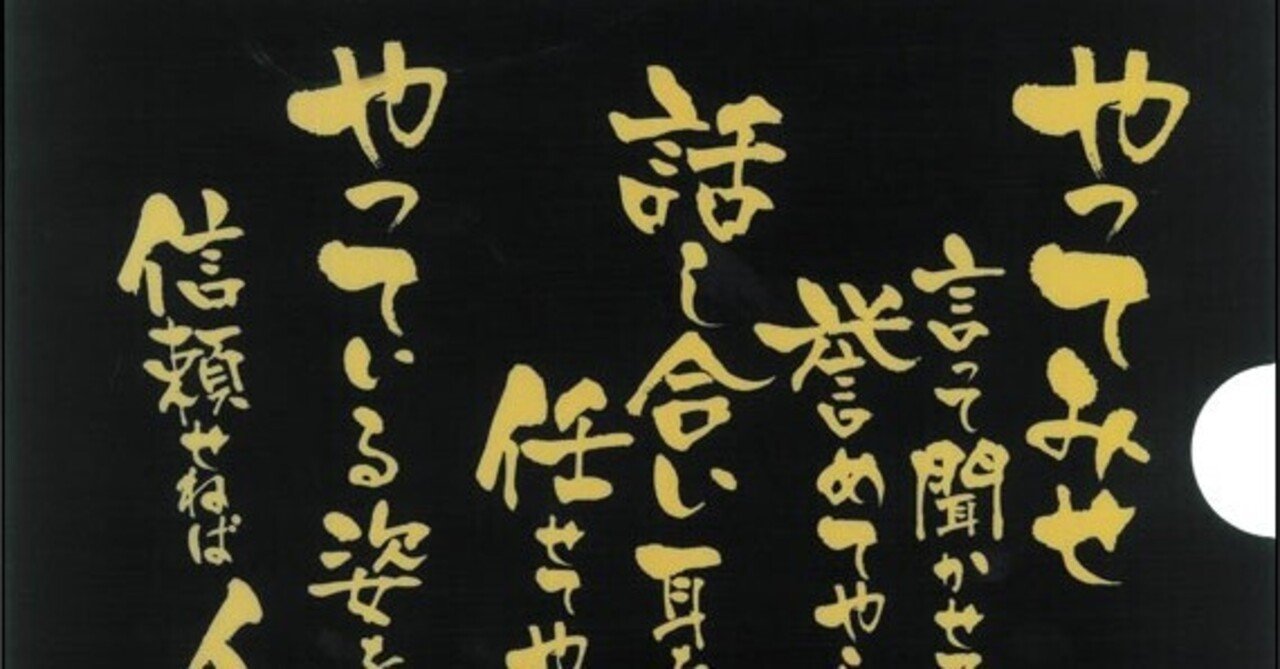 やってみせ
言って聞かせて
誉めてやら
話し合い耳を
任せてや
やっている姿を
信頼せねば人